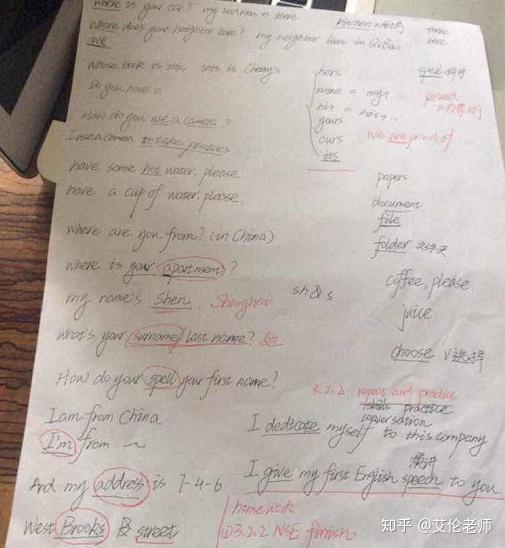 Where is your car? my bedroom is there
kitchen
there
Where does your neighbor live? my neighbor lives in QiBao
We
Whose book is this this is Cherry's
hers
Do you have a
mine = my +
his = his +
yours
How do you use a camera?
ours
We are proud of
I use a camera to take photos
its
have some hot water, please.
have a cup of water, please.
papers
document
file
where are you from? (in China)
folder 文件夹
where is your apartment?
coffee, please
my name's Shen. Shanghai
sh & s
juice
what's your surname/last name? 姓
choose v 选择
How do your spell your first name?
3.2.2 repeat and practice
skills practice
conversation
I am from China
I dedicate myself to this company
I'm from ~
演讲
And my address is 7-4-6
I give my first English speech to you.
West Brooks street
homework
① 3.2.2 NSE finish
知乎 @艾伦老师